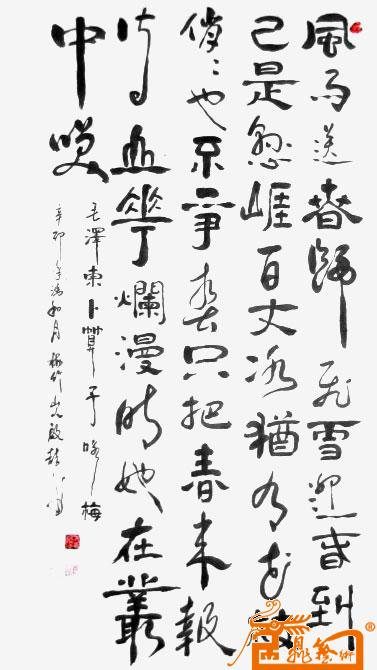 風雨送春歸飛雪迎春到
已是懸崖百丈冰猶有花枝
俏俏也不爭春只把春來報
待到山花爛漫時她在叢
中笑
毛澤東卜算子咏梅
辛卯年